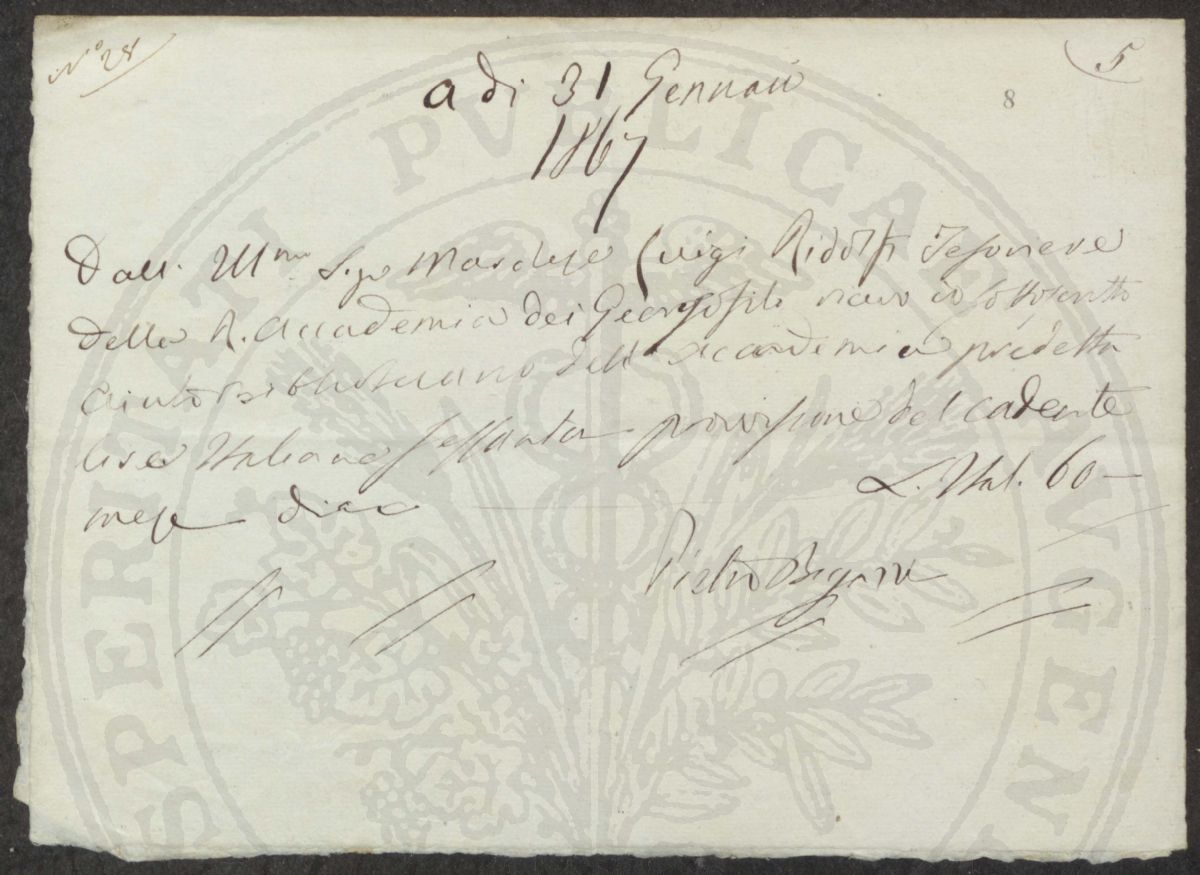 N° 28
5
8
a di 31 Gennaio
1867
Dall. Illmo Sigr Marchese Luigi Ridolfi Tesoriere
della R. Accademia dei Georgofili ricevo io sottoscritto
aiuto bibliotecario dell' Accademia predetta
lire Italiane sessanta provvisione del cadente
mese dico L. Ital. 60—
Pietro Bigazzi
PROSPERITATI PVBLICAE AVGENDAE